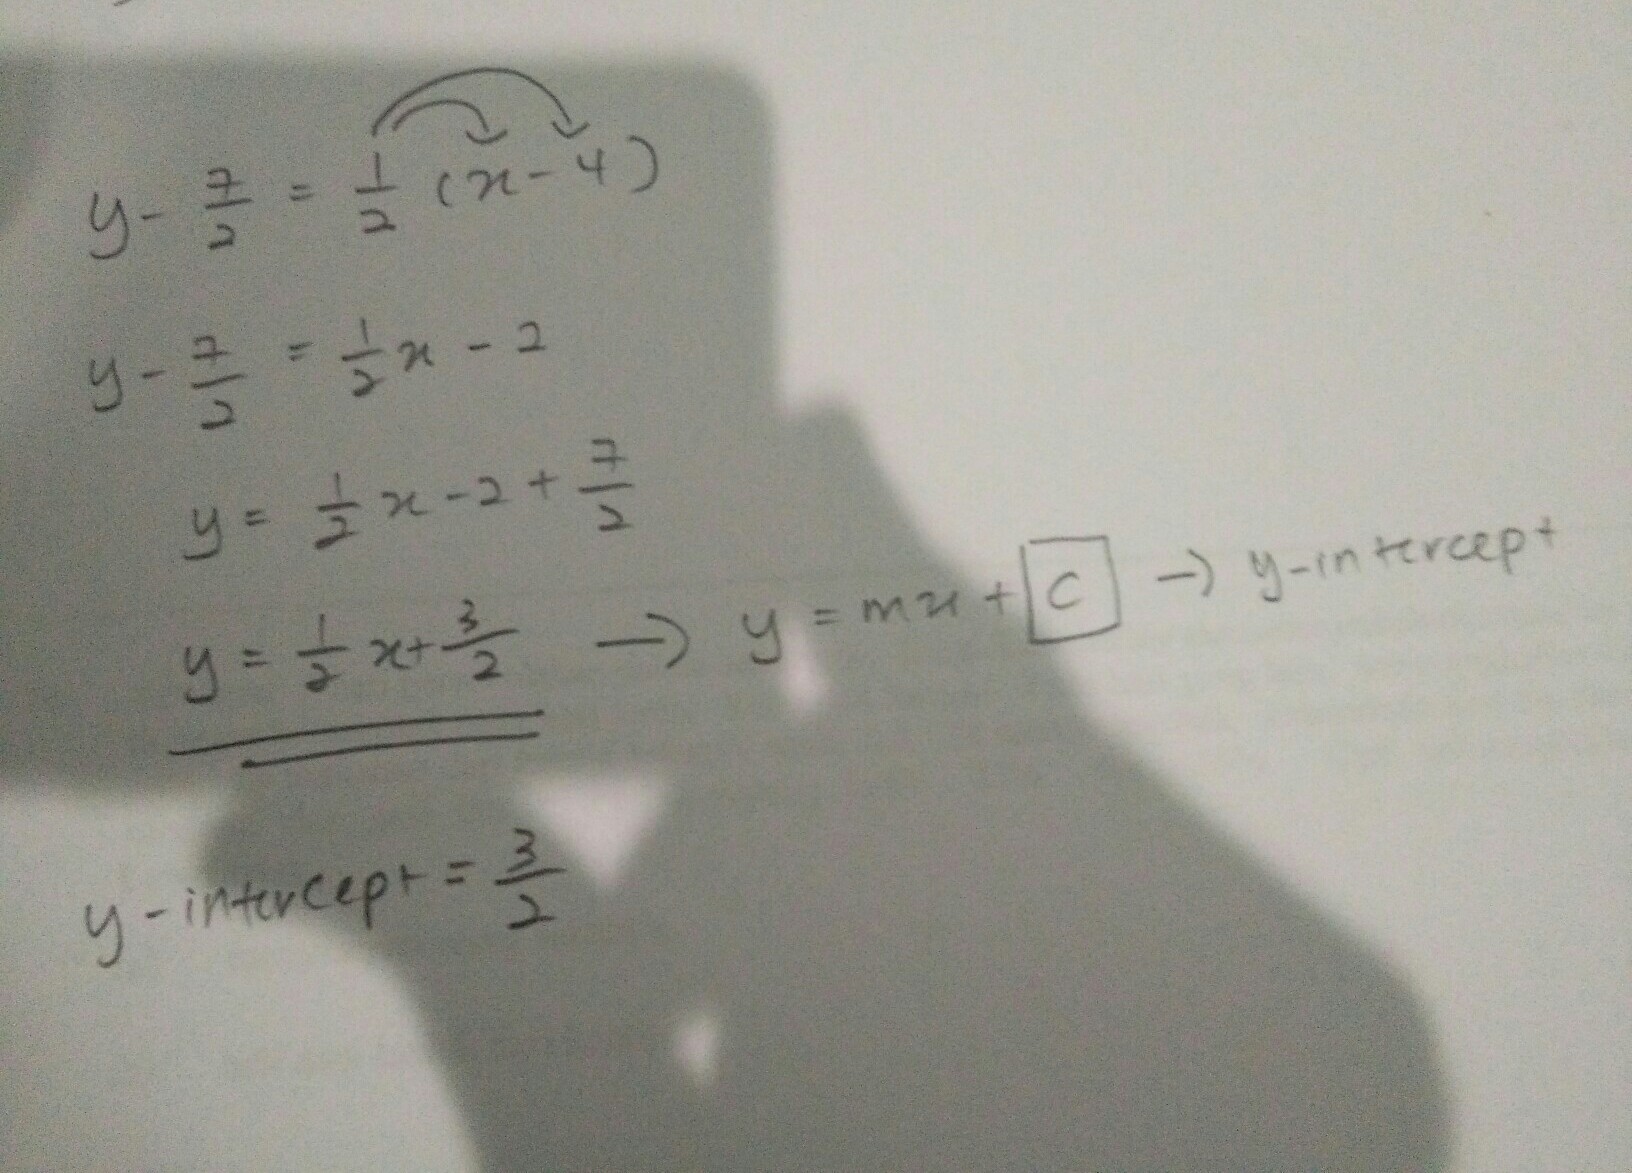 y - 7/2 = 1/2 (x - 4)
y - 7/2 = 1/2 x - 2
y = 1/2 x - 2 + 7/2
y = 1/2 x + 3/2 → y = mx + c → y-intercept
y-intercept = 3/2